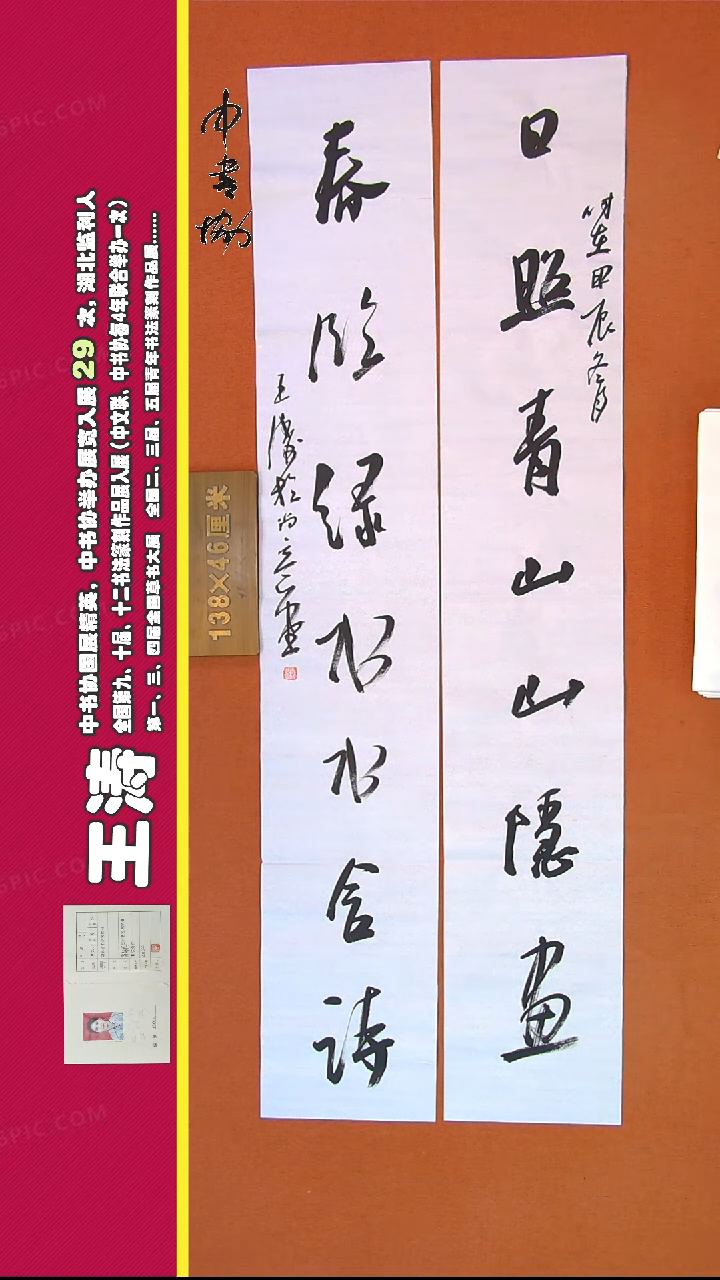 日照青山山隱画
时在甲辰冬月
春臨绿水水含詩
王涛於尚
中书协
138×46厘米
王涛
中书协国展精英，中书协举办展览入展 29 次，湖北监利人
全国第九、十届、十二书法篆刻作品展入展（中文联、中书协每4年联合举办一次）
第一、三、四届全国草书大展 全国二、三届、五届青年书法篆刻作品展……